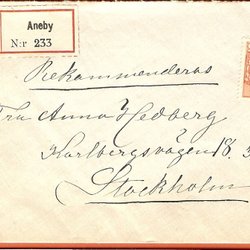 Aneby
N:r 233
Rekommenderas
Fru Anna Hedberg
Karlbergsvägen 18. 3
Stockholm